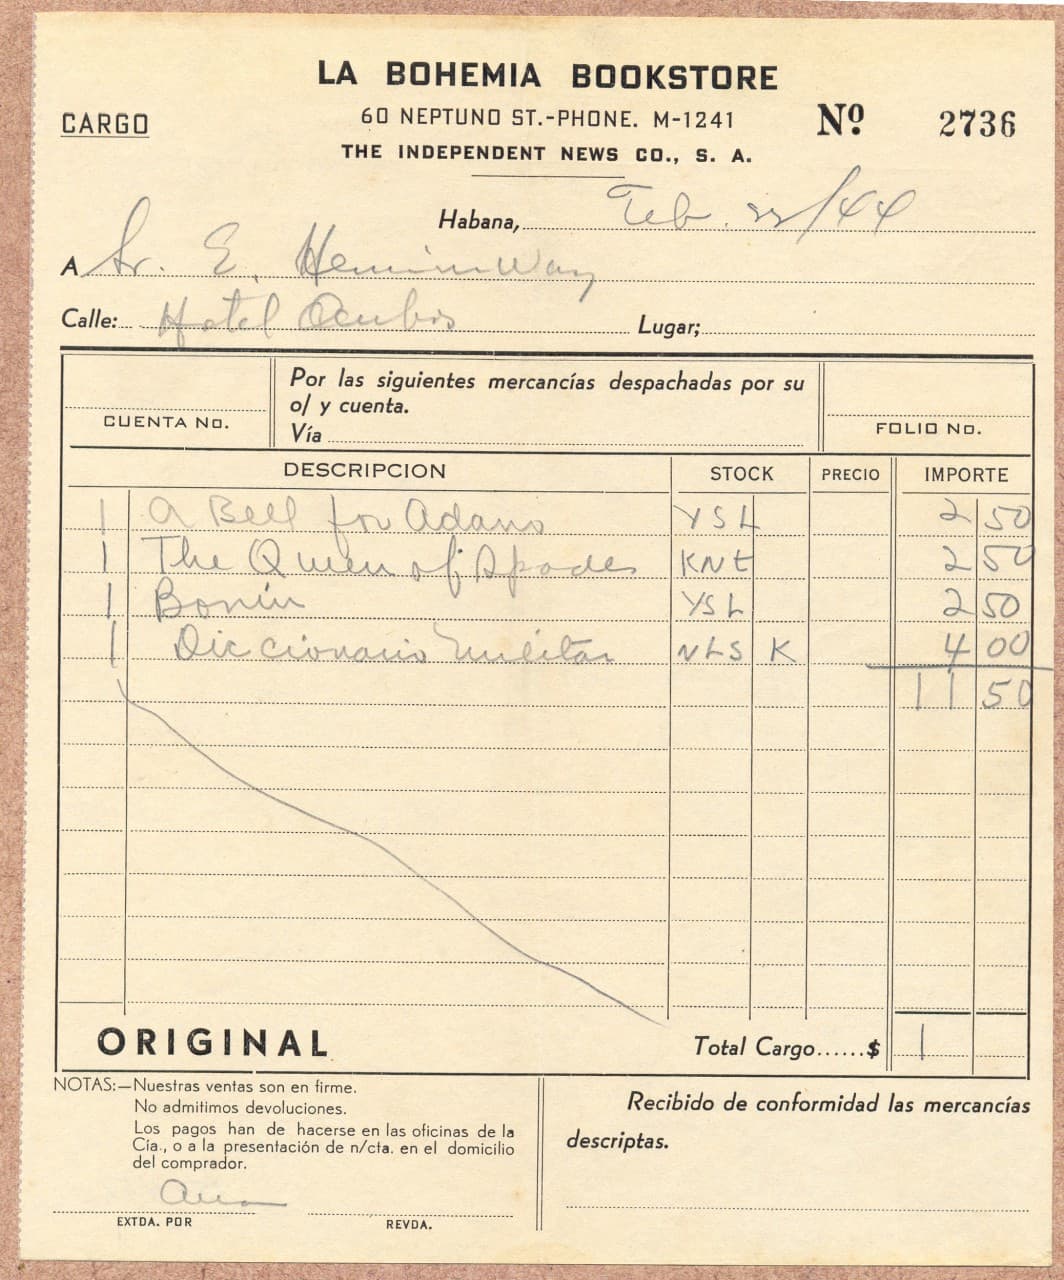 LA BOHEMIA BOOKSTORE
60 NEPTUNO ST.-PHONE. M-1241
THE INDEPENDENT NEWS CO., S. A.
CARGO
Nº 2736
Habana, Feb. 22/44
A Sr. E. Heminway
Calle: Hotel Lugar;
CUENTA No.
Por las siguientes mercancías despachadas por su
o/ y cuenta.
Vía
FOLIO No.
DESCRIPCION STOCK PRECIO IMPORTE
1 A Bell for Adano YSL 2 50
1 The Queen of Spades KNE 2 50
1 YSL 2 50
1 Diccionario Militar NLS K 4 00
11 50
ORIGINAL
Total Cargo......$ 1
NOTAS:—Nuestras ventas son en firme.
No admitimos devoluciones.
Los pagos han de hacerse en las oficinas de la
Cía., o a la presentación de n/cta. en el domicilio
del comprador.
EXTDA. POR REVDA.
Recibido de conformidad las mercancías
descriptas.